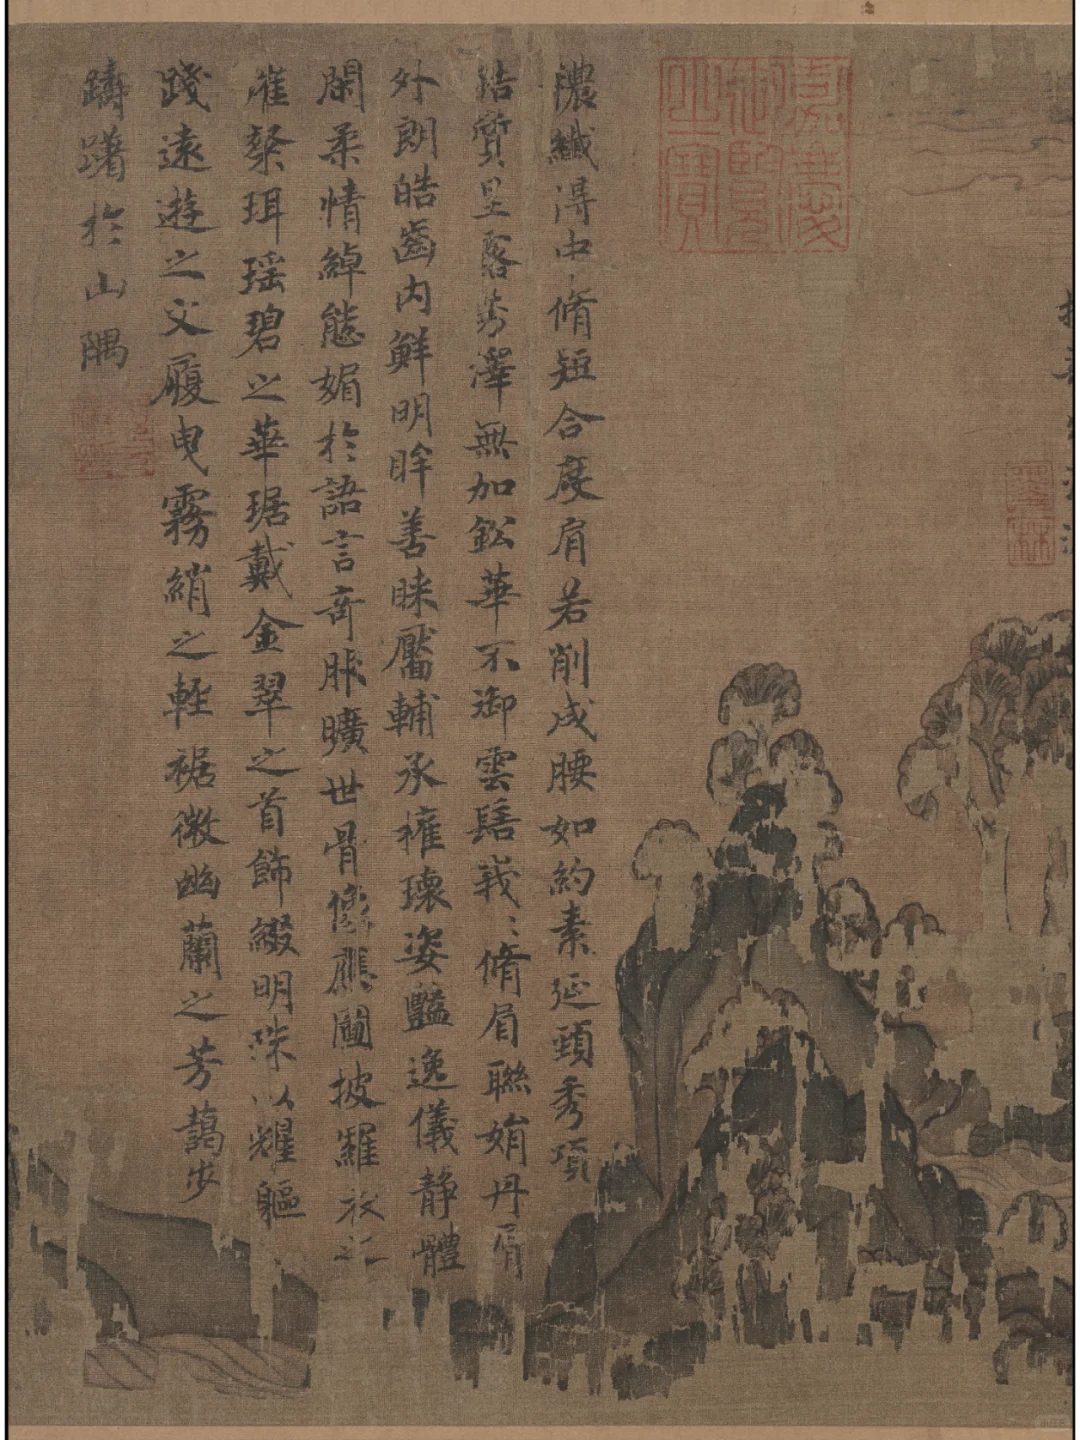 嘉慶御覽之寶
蕉林
濃纖得中脩短合度肩若削成腰如約素延頸秀項
皓質呈露芳澤無加鈆華不御雲髻峩〻脩眉聯娟丹脣
外朗皓齒内鮮明眸善睞靨輔承權瓌姿豔逸儀静體
閑柔情綽態媚於語言奇服曠世骨像應圖披羅衣之
璀粲珥瑶碧之華琚戴金翠之首飾綴明珠以耀軀
踐遠遊之文履曳霧綃之輕裾微幽蘭之芳藹步
躊躇於山隅